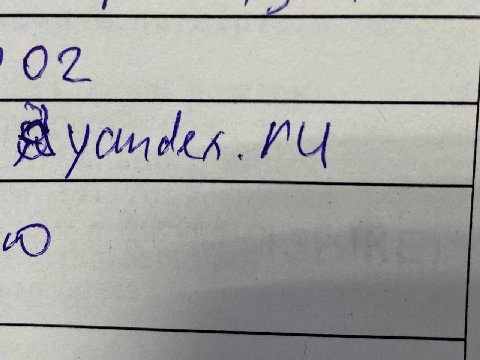 02
@yandex.ru
ю